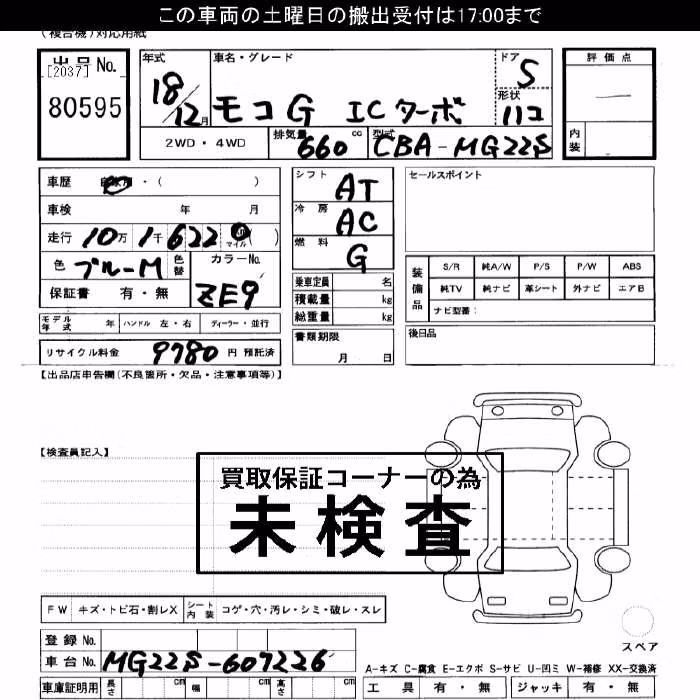 この車両の土曜日の搬出受付は17:00まで
(複合機)対応用紙
出品No.
[2037]
80595
年式
18/12月
車名・グレード
モコG ICターボ
ドア
5
形状
ハコ
評価点
—
内装
2WD・4WD
排気量
660 cc
型式
CBA-MG22S
車歴 自家用・( )
車検 年 月
走行 10万1千622 km マイル ( )
色 ブルーM
色替
カラーNo.
ZE9
保証書 有・無
シフト
AT
冷房
AC
燃料
G
セールスポイント
乗車定員 名
積載量 kg
総重量 kg
装備品
S/R 純A/W P/S P/W ABS
純TV 純ナビ 革シート 外ナビ エアB
ナビ型番:
モデル年式 年 ハンドル 左・右 ディーラー・並行
書類期限
月 日
後日品
リサイクル料金 9780 円 預託済
【出品店申告欄(不良箇所・欠品・注意事項等)】
【検査員記入】
買取保証コーナーの為
未検査
FW キズ・トビ石・割レX シート内装 コゲ・穴・汚レ・シミ・破レ・スレ
スペア
登録No.
車台No. MG22S-607226
A-キズ C-腐食 E-エクボ S-サビ U-凹ミ W-補修 XX-交換済
車庫証明用 長さ cm 幅 cm 高さ cm
工具 有・無 ジャッキ 有・無